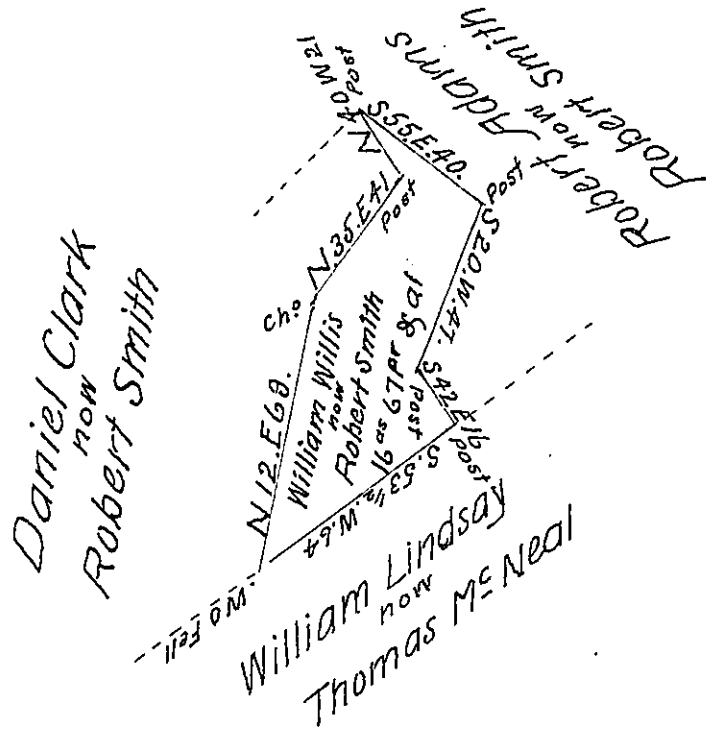 Daniel Clark
now
Robert Smith
N 40 W 21
Post
S.55.E.40.
Robert Adams
now
Robert Smith
N.35.E 41.
Post
Post
Ch:o
N 12. E 69.
William Willis
now
Robert Smith
16 as 67 pr & al
S 20. W. 47.
Post
S 42 E 16
Post
S. 53 1/2 W. 64
W O Fell
William Lindsay
now
Thomas Mc Neal